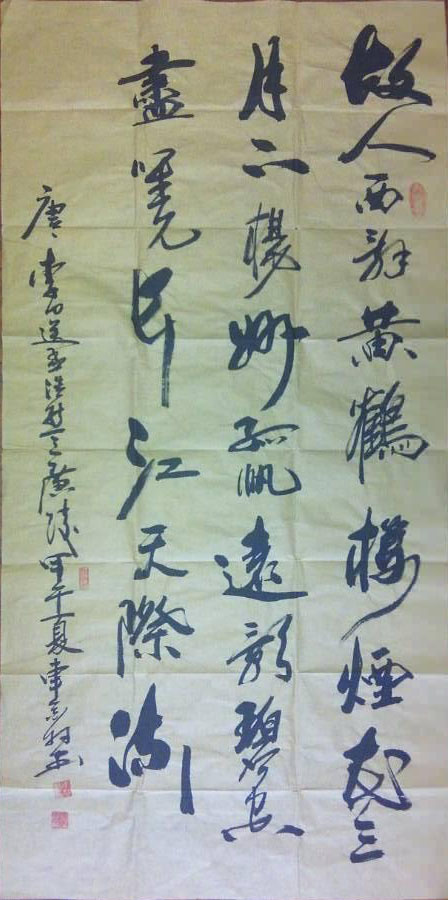 故人西辞黄鶴樓煙花三
月下楊州孤帆遠影碧空
盡唯見長江天際流
唐李白送孟浩然之廣陵甲午夏韋書